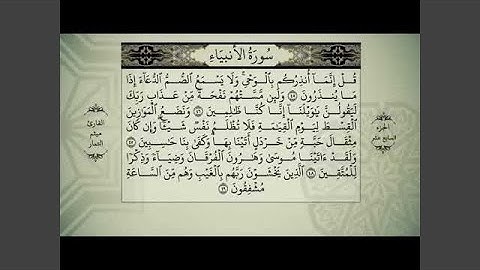 سُورَةُ الأَنبِيَاءِ
قُلْ إِنَّمَآ أُنذِرُكُم بِٱلْوَحْىِ ۚ وَلَا يَسْمَعُ ٱلصُّمُّ ٱلدُّعَآءَ إِذَا
مَا يُنذَرُونَ ﴿٤٥﴾ وَلَئِن مَّسَّتْهُمْ نَفْحَةٌ مِّنْ عَذَابِ رَبِّكَ
لَيَقُولُنَّ يَٰوَيْلَنَآ إِنَّا كُنَّا ظَٰلِمِينَ ﴿٤٦﴾ وَنَضَعُ ٱلْمَوَٰزِينَ
ٱلْقِسْطَ لِيَوْمِ ٱلْقِيَٰمَةِ فَلَا تُظْلَمُ نَفْسٌ شَيْـًٔا ۖ وَإِن كَانَ
مِثْقَالَ حَبَّةٍ مِّنْ خَرْدَلٍ أَتَيْنَا بِهَا ۗ وَكَفَىٰ بِنَا حَٰسِبِينَ ﴿٤٧﴾
وَلَقَدْ ءَاتَيْنَا مُوسَىٰ وَهَٰرُونَ ٱلْفُرْقَانَ وَضِيَآءً وَذِكْرًا
لِّلْمُتَّقِينَ ﴿٤٨﴾ ٱلَّذِينَ يَخْشَوْنَ رَبَّهُم بِٱلْغَيْبِ وَهُم مِّنَ ٱلسَّاعَةِ
مُشْفِقُونَ ﴿٤٩﴾
الجزء
السابع عشر
القارئ
ميثم
التمار